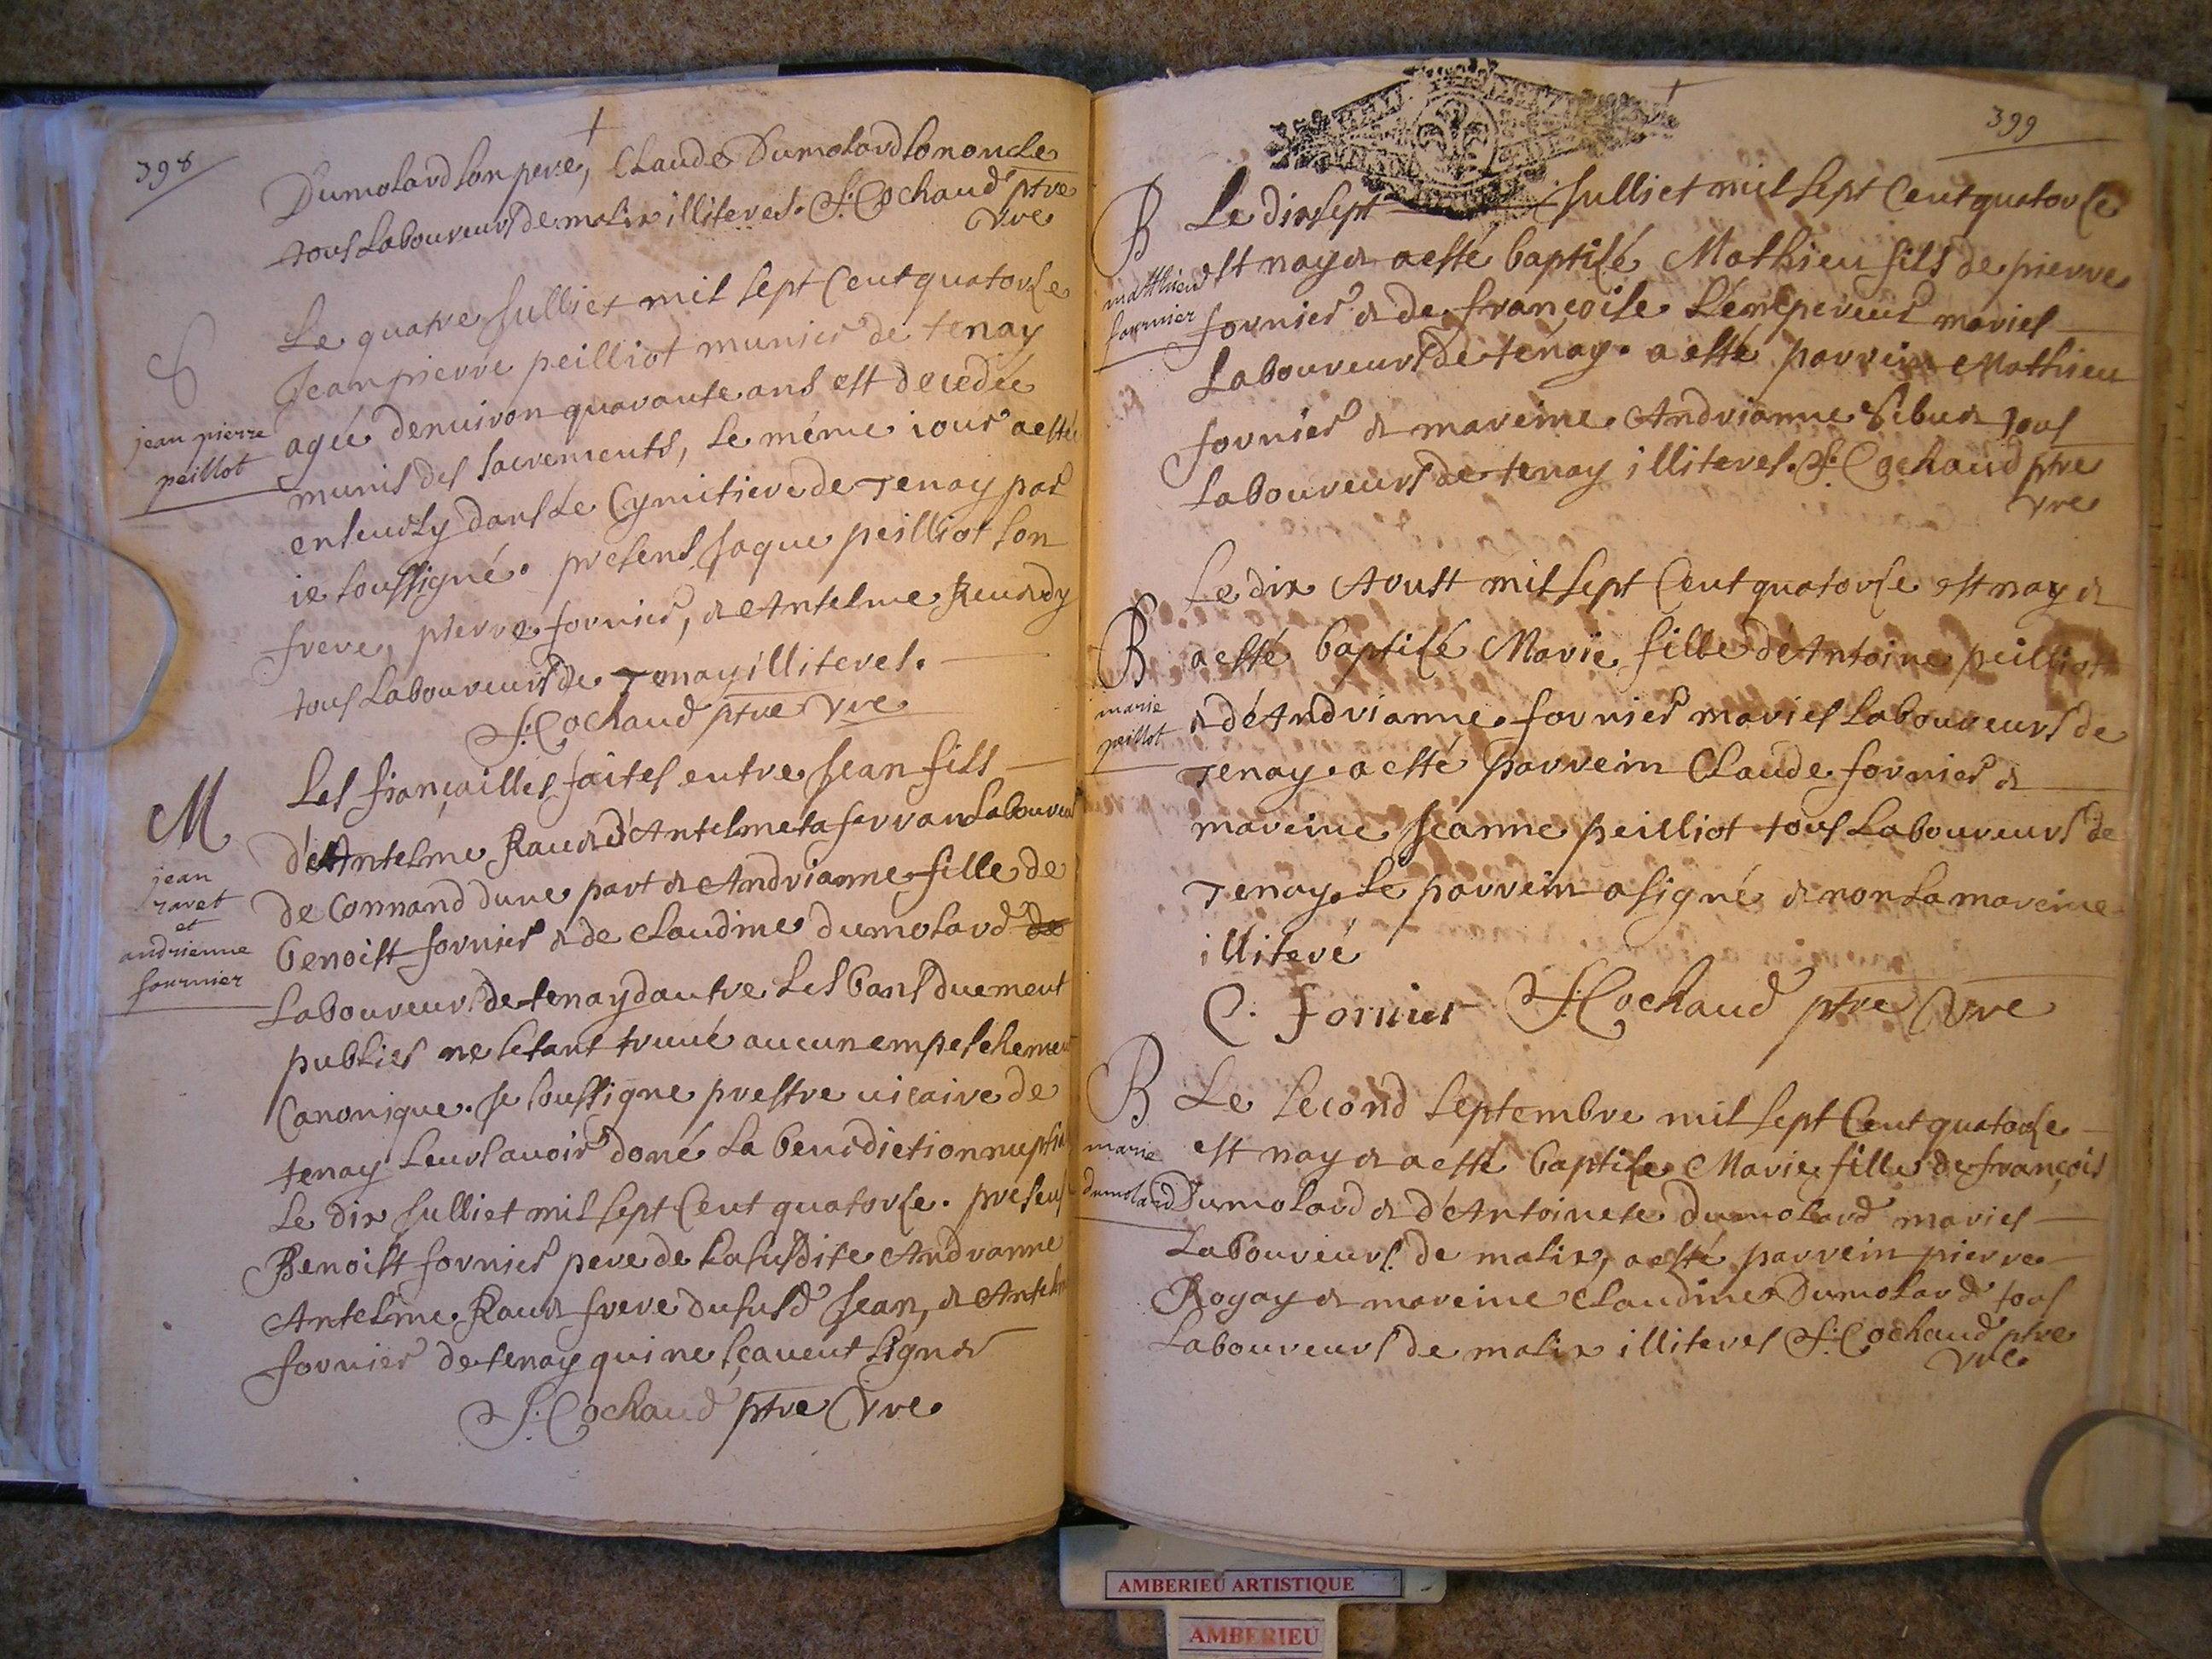 398
Dumolard son pere, Claude Dumolard son oncle
tous Laboureurs de malix illiteres. J: Cochaud ptre
vre
S
jean pierre
peillot
Le quatre Julliet mil sept Cent quatorse
Jean pierre peilliot munier de tenay
agée denuiron quarante ans est decedée
munis des sacrements, le méme iour a esté
enseuely dans le Cymitiere de Tenay par
ie soussigné. presens Jaque peilliot son
frere, pierre fornier, & Antelme
tous Laboureurs de Tenay illiteres.
J: Cochaud ptre vre
M
jean
ravet
et
andrienne
fournier
Les fiançailles faites entre Jean fils
d'Antelme Rauet & d'Antelmeta ferran Laboureur
de Connand dune part & Andrianne fille de
benoist fornier & de claudine dumolard de
Laboureurs de tenay dautre Les bans duement
publies ne setant truué aucun empeschement
Canonique. Je soussigne prestre uicaire de
tenay leurs auoir doné La benediction nuptia
Le dix Julliet mil sept Cent quatorse. presens
Benoist fornier pere de La susdite Andranne
Antelme Rauet frere du susd Jean, & Antelm
fornier de tenay qui ne sçauent signer
J: Cochaud ptre vre
399
B
matthieu
fournier
Le dix sept Julliet mil sept Cent quatorse
est nay & a esté baptisé Mathieu fils de pierre
fornier & de françoise Lémpereur maries
Laboureurs de tenay. a esté parrein Mathieu
fornier & mareine Andrianne Sibuet tous
Laboureurs de tenay illiteres. J: Cochaud ptre
vre
B
marie
peillot
Le dix Aoust mil sept Cent quatorse est nay &
a esté baptisé Marie fille d'Antoine peilliot
& d'Andrianne fornier maries Laboureurs de
Tenay. a esté parrein Claude fornier &
mareine Jeanne peilliot tous Laboureurs de
Tenay. Le parrein a signé & non La mareine
illiteré
C. fornier J: Cochaud ptre vre
B
marie
dumolard
Le second septembre mil sept Cent quatorse
est nay & a esté baptise Marie fille de françois
Dumolard & d'Antoinete Dumolard maries
Laboureurs de malix, a esté parrein pierre
Rogay & mareine claudine Dumolard tous
Laboureurs de malix illiteres J: Cochaud ptre
vre
AMBERIEU ARTISTIQUE
AMBERIEU